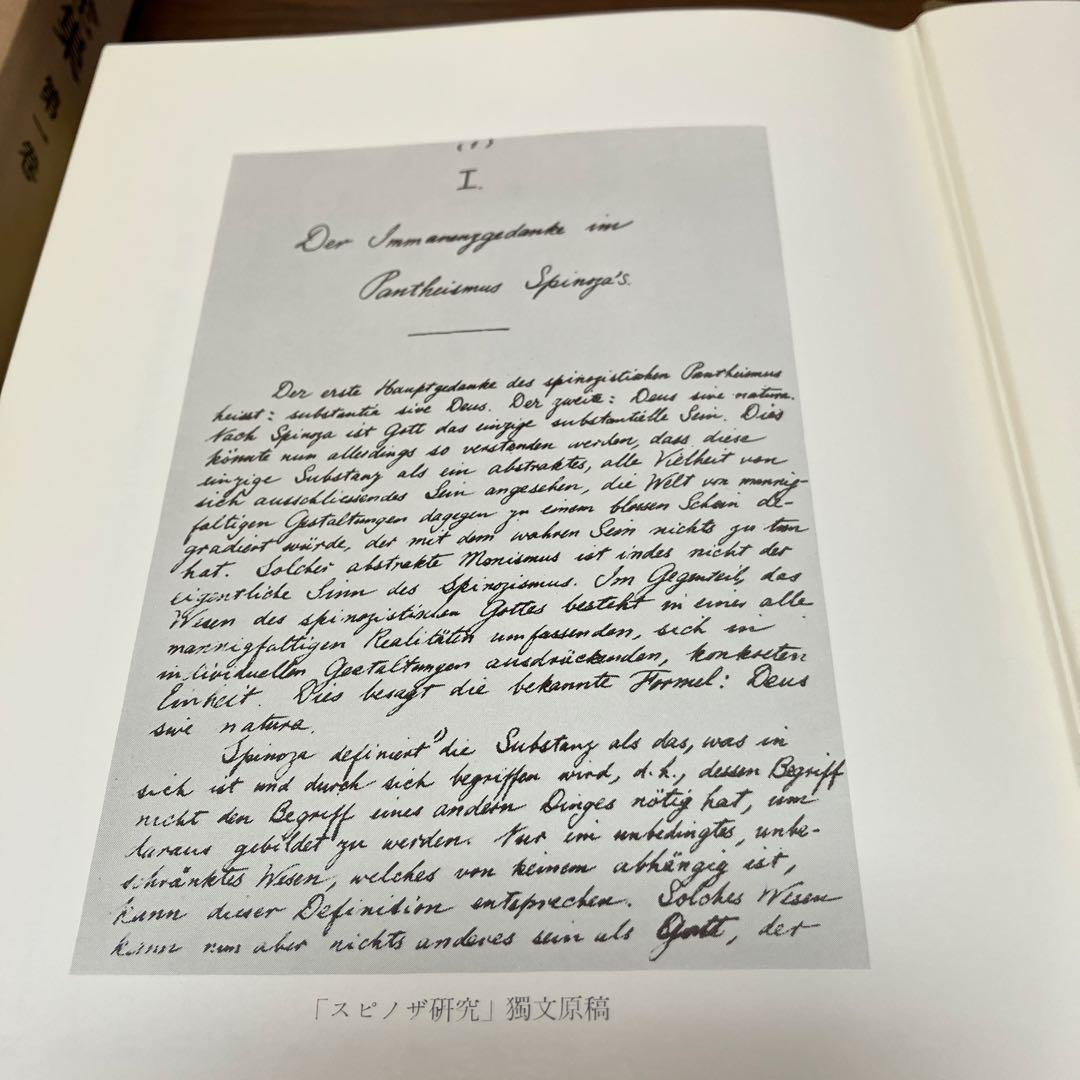 第一卷
(1)
I.
Der Immanenzgedanke im
Pantheismus Spinoza's.
Der erste Hauptgedanke des spinozistischen Pantheismus
heisst: substantia sive Deus. Der zweite: Deus sive natura.
Nach Spinoza ist Gott das einzige substantielle Sein. Dies
könnte nun allerdings so verstanden werden, dass diese
einzige Substanz als ein abstraktes, alle Vielheit von
sich ausschliessendes Sein angesehen, die Welt von mannig-
faltigen Gestaltungen dagegen zu einem blossen Schein de-
gradiert würde, der mit dem wahren Sein nichts zu tun
hat. Solcher abstrakte Monismus ist indes nicht der
eigentliche Sinn des Spinozismus. Im Gegenteil, das
Wesen des spinozistischen Gottes besteht in einer alle
mannigfaltigen Realitäten umfassenden, sich in
individuellen Gestaltungen ausdrückenden, konkreten
Einheit. Dies besagt die bekannte Formel: Deus
sive natura.
Spinoza definiert 1) die Substanz als das, was in
sich ist und durch sich begriffen wird, d.h., dessen Begriff
nicht den Begriff eines andern Dinges nötig hat, um
daraus gebildet zu werden. Nur ein unbedingtes, unbe-
schränktes Wesen, welches von keinem abhängig ist,
kann dieser Definition entsprechen. Solches Wesen
kann nun aber nichts anderes sein als Gott, der
「スピノザ研究」獨文原稿